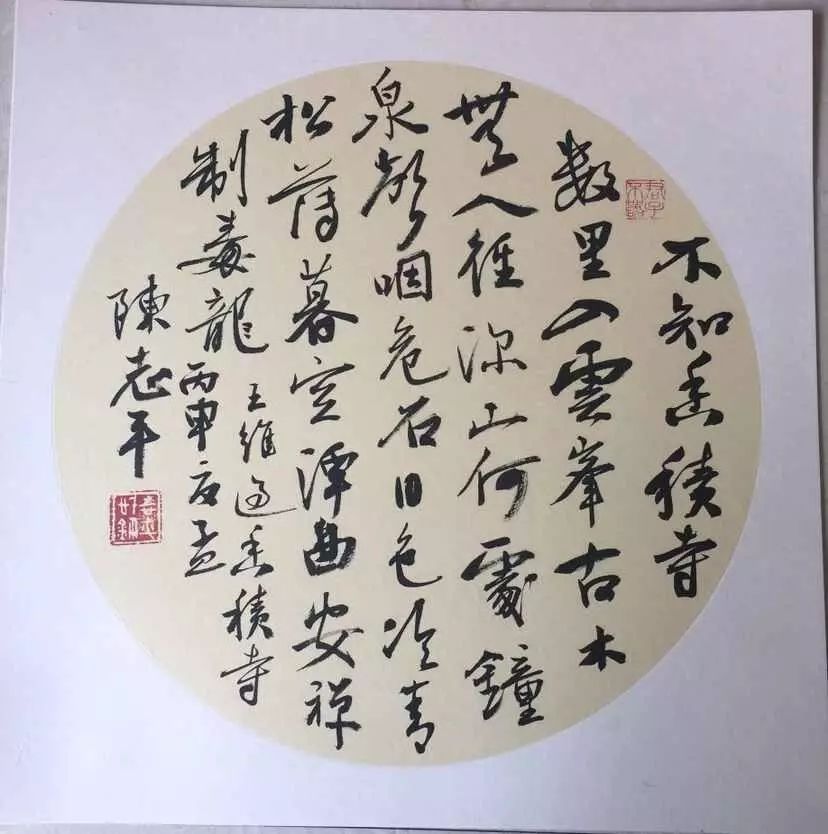 不知香積寺
君子不器
数里入雲峯古木
無人徑深山何處鐘
泉聲咽危石日色冷青
松薄暮空潭曲安禅
制毒龍
王維過香積寺
丙申孟
陳志平